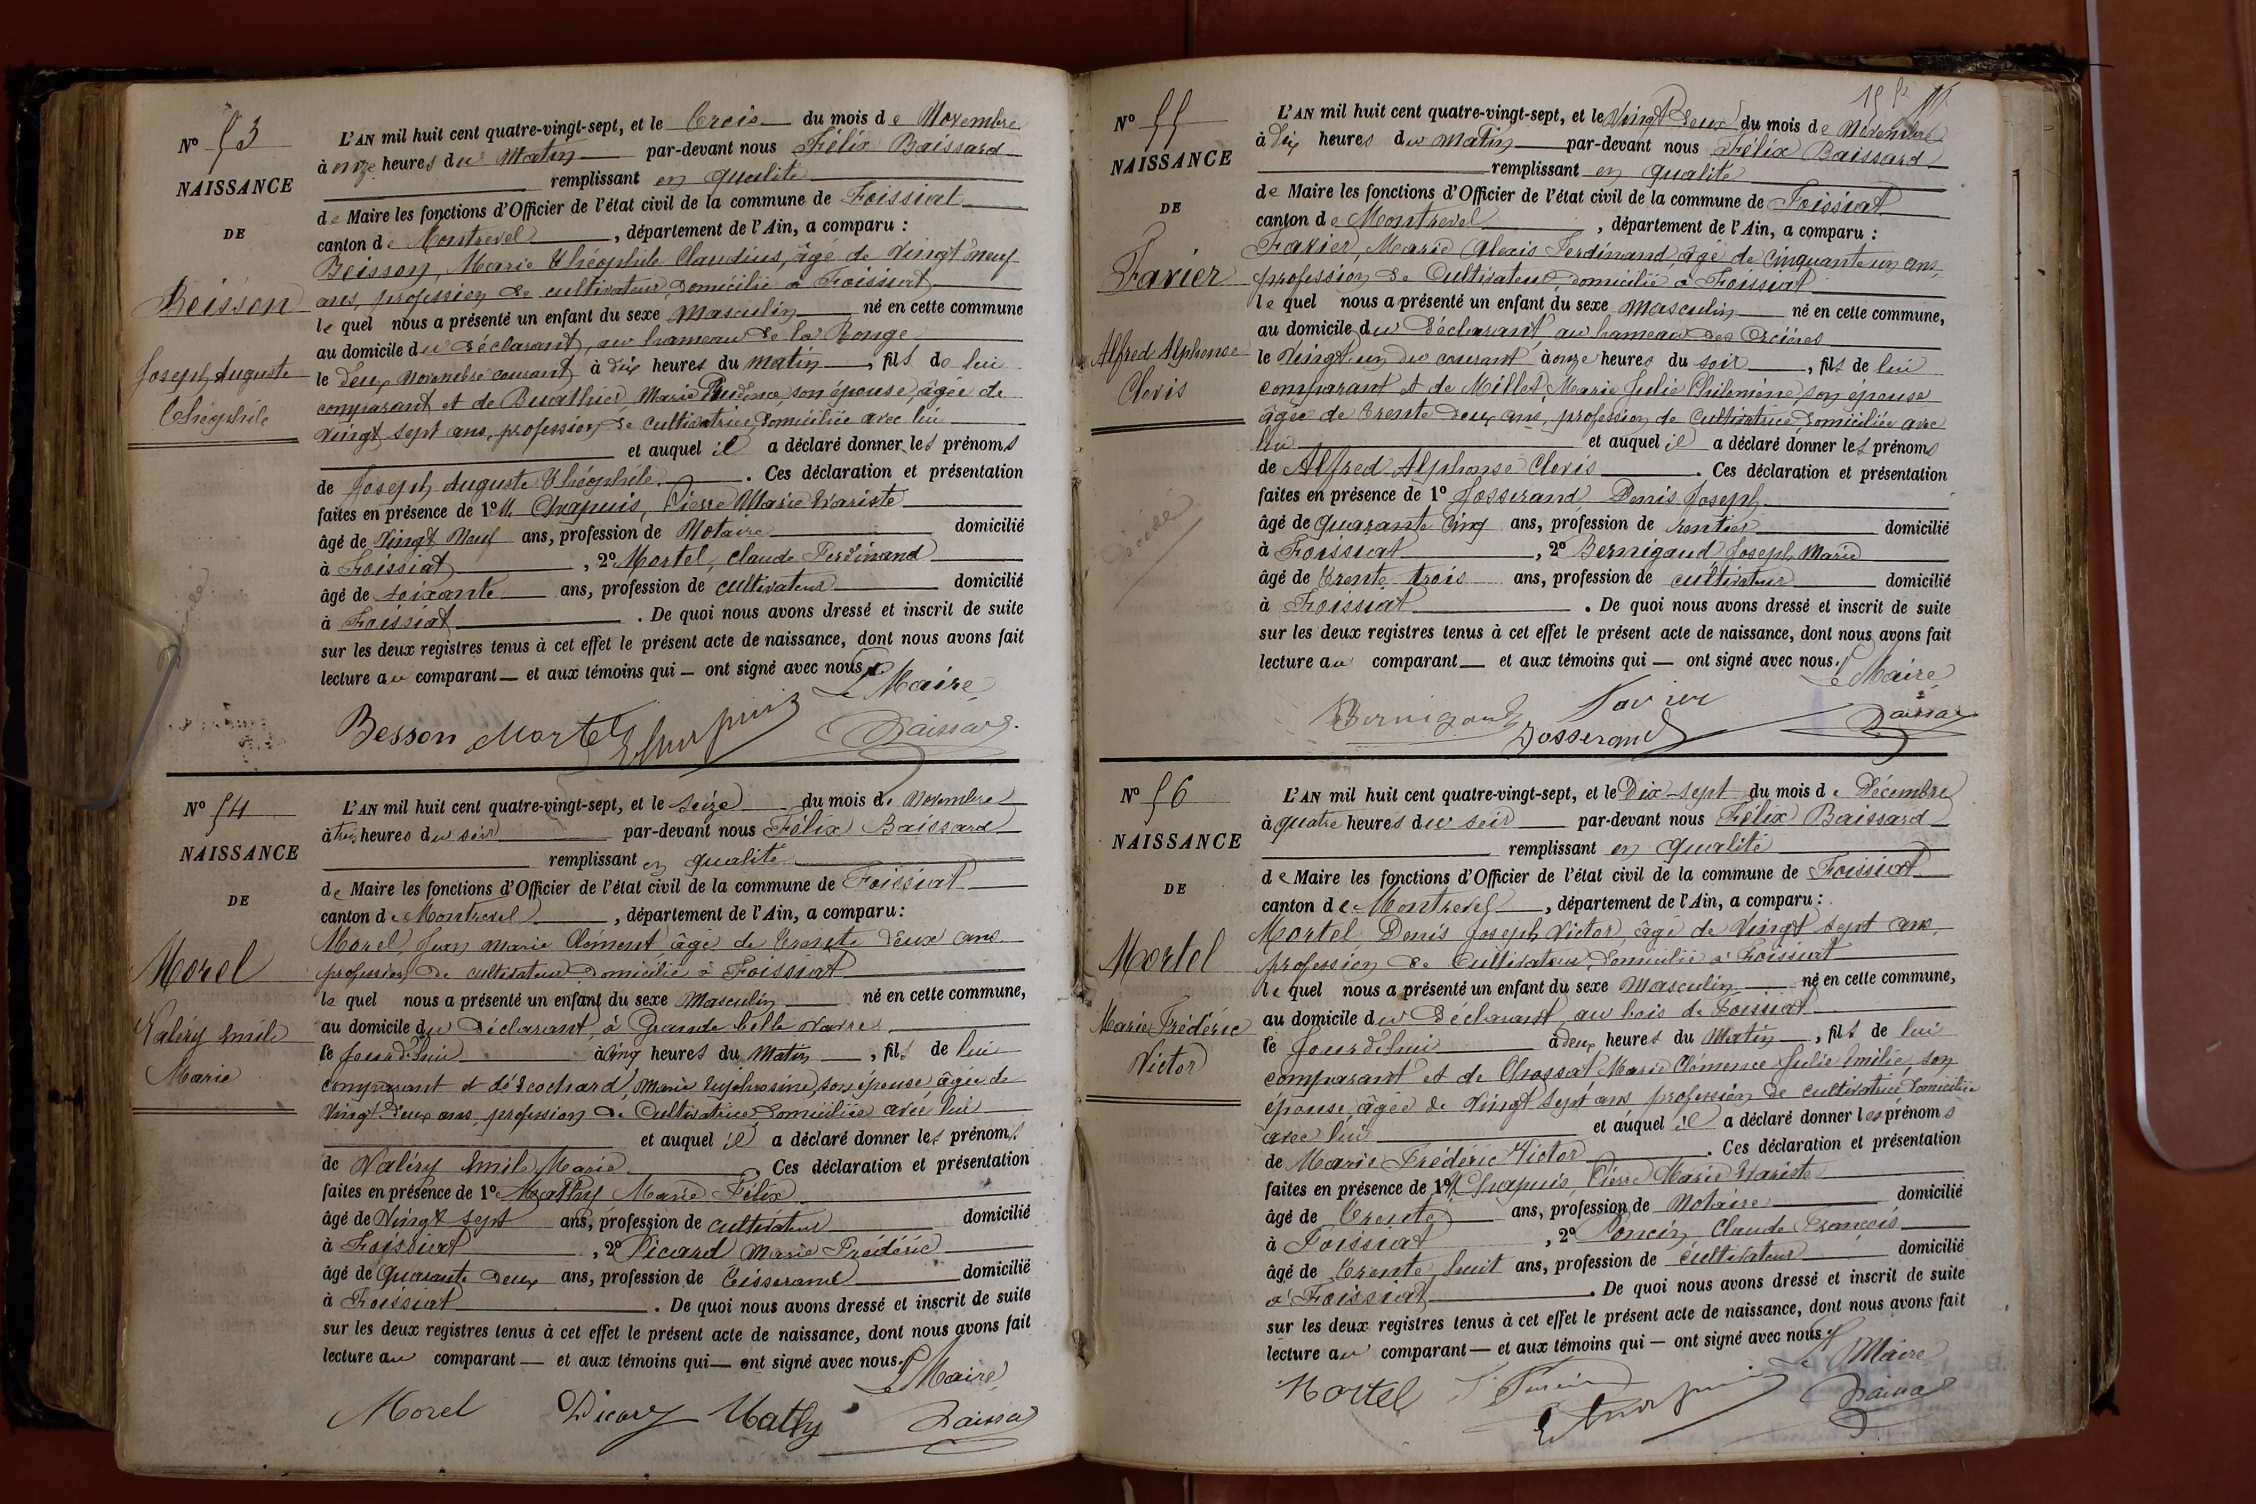 N° 53
NAISSANCE
DE
Beisson
Joseph Auguste
Théophile
L'AN mil huit cent quatre-vingt-sept, et le Trois du mois de Novembre
à onze heures du Matin par-devant nous Félix Baissard
remplissant en qualité
de Maire les fonctions d'Officier de l'état civil de la commune de Foissiat
canton de Montrevel, département de l'Ain, a comparu :
Beisson, Marie Théophile Claudius, âgé de Vingt neuf
ans, profession de cultivateur, domicilié à Foissiat
le quel nous a présenté un enfant du sexe Masculin né en cette commune
au domicile du déclarant, au hameau de la Ronge
le deux Novembre courant à dix heures du matin, fils de lui
comparant et de Buathier, Marie Prudence, son épouse, âgée de
vingt sept ans, profession de cultivatrice, domiciliée avec lui
et auquel il a déclaré donner les prénoms
de Joseph Auguste Théophile. Ces déclaration et présentation
faites en présence de 1° M. Chapuis, Pierre Marie Evariste
âgé de Vingt Neuf ans, profession de Notaire domicilié
à Foissiat, 2° Mortel, Claude Ferdinand
âgé de soixante ans, profession de cultivateur domicilié
à Foissiat. De quoi nous avons dressé et inscrit de suite
sur les deux registres tenus à cet effet le présent acte de naissance, dont nous avons fait
lecture au comparant et aux témoins qui ont signé avec nous.
Le Maire
Besson Mortel Chapuis Baissard
N° 54
NAISSANCE
DE
Morel
Valéry Emile
Marie
L'AN mil huit cent quatre-vingt-sept, et le seize du mois de Novembre
à trois heures du soir par-devant nous Félix Baissard
remplissant en qualité
de Maire les fonctions d'Officier de l'état civil de la commune de Foissiat
canton de Montrevel, département de l'Ain, a comparu :
Morel, Jean Marie Clément âgé de Trente deux ans
profession de cultivateur domicilié à Foissiat
le quel nous a présenté un enfant du sexe Masculin né en cette commune,
au domicile du déclarant, à Grande
le Jourd'hui à cinq heures du Matin, fils de lui
comparant et de Marie Euphrosine, son épouse âgée de
vingt deux ans, profession de Cultivatrice domiciliée avec lui
et auquel il a déclaré donner les prénoms
de Valéry Emile Marie. Ces déclaration et présentation
faites en présence de 1° Mathy Marie Félix
âgé de Vingt sept ans, profession de cultivateur domicilié
à Foissiat, 2° Picard Marie Frédéric
âgé de Quarante deux ans, profession de Tisserand domicilié
à Foissiat. De quoi nous avons dressé et inscrit de suite
sur les deux registres tenus à cet effet le présent acte de naissance, dont nous avons fait
lecture au comparant et aux témoins qui ont signé avec nous.
Le Maire
Morel Picard Mathy Baissard
N° 55
NAISSANCE
DE
Favier
Alfred Alphonse
Clovis
L'AN mil huit cent quatre-vingt-sept, et le Vingt Deux du mois de Novembre
à dix heures du matin par-devant nous Félix Baissard
remplissant en qualité
de Maire les fonctions d'Officier de l'état civil de la commune de Foissiat
canton de Montrevel, département de l'Ain, a comparu :
Favier, Marie Alexis Ferdinand âgé de cinquante un ans,
profession de Cultivateur, domicilié à Foissiat
le quel nous a présenté un enfant du sexe Masculin né en cette commune,
au domicile du déclarant, au hameau des Orcières
le Vingt un du courant à onze heures du soir, fils de lui
comparant et de Millet, Marie Julie Philomène, son épouse
âgée de trente deux ans, profession de Cultivatrice, domiciliée avec
lui et auquel il a déclaré donner les prénoms
de Alfred Alphonse Clovis. Ces déclaration et présentation
faites en présence de 1° Josserand, Denis Joseph
âgé de Quarante Cinq ans, profession de rentier domicilié
à Foissiat, 2° Bernigaud Joseph Marie
âgé de Trente trois ans, profession de cultivateur domicilié
à Foissiat. De quoi nous avons dressé et inscrit de suite
sur les deux registres tenus à cet effet le présent acte de naissance, dont nous avons fait
lecture au comparant et aux témoins qui ont signé avec nous.
Le Maire
Bernigaud Favier Josserand Baissard
N° 56
NAISSANCE
DE
Mortel
Marie Frédéric
Victor
L'AN mil huit cent quatre-vingt-sept, et le Dix-sept du mois de Décembre
à quatre heures du soir par-devant nous Félix Baissard
remplissant en qualité
de Maire les fonctions d'Officier de l'état civil de la commune de Foissiat
canton de Montrevel, département de l'Ain, a comparu :
Mortel, Denis Joseph Victor, âgé de Vingt sept ans,
profession de Cultivateur, domicilié à Foissiat
le quel nous a présenté un enfant du sexe Masculin né en cette commune,
au domicile du déclarant, au bois de Foissiat
le Jourd'hui à deux heures du Matin, fils de lui
comparant et de Chossat Marie Clémence Julie Emilie, son
épouse, âgée de vingt sept ans profession de cultivatrice domiciliée
avec lui et auquel il a déclaré donner les prénoms
de Marie Frédéric Victor. Ces déclaration et présentation
faites en présence de 1° M. Chapuis, Pierre Marie Evariste
âgé de Trente ans, profession de Notaire domicilié
à Foissiat, 2° Poncin, Claude François
âgé de Trente huit ans, profession de cultivateur domicilié
à Foissiat. De quoi nous avons dressé et inscrit de suite
sur les deux registres tenus à cet effet le présent acte de naissance, dont nous avons fait
lecture au comparant et aux témoins qui ont signé avec nous.
Le Maire
Mortel Chapuis Baissard